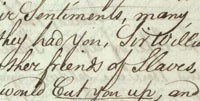 ir Sentiments, many
they had You, Sir Willi
other friends of Slaves,
would Cut you up, and